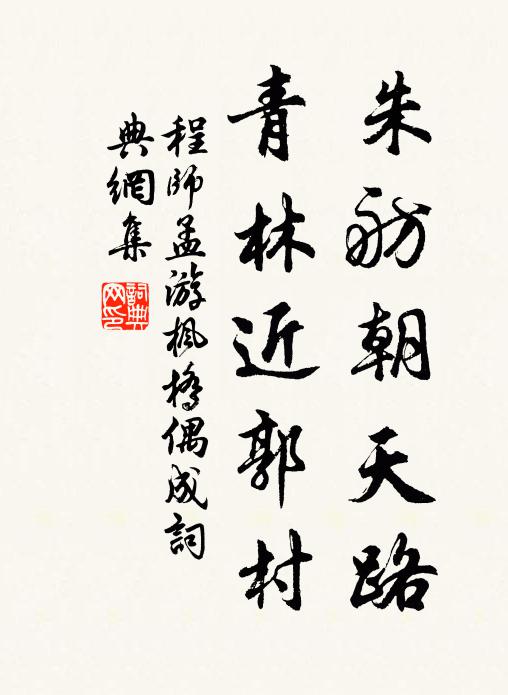 朱舫朝天路
青林近郭村
程師孟游楓橋偶成詞
典網集
詞典网印